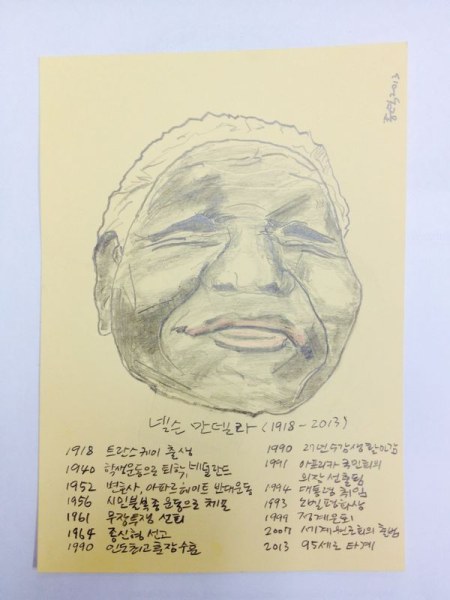 넬슨 만델라 (1918 - 2013)
1918 트란스케이 출생
1940 학생운동으로 퇴학,
1952 변호사, 아파르헤이트 반대운동
1956 시민불복종 운동으로 체포
1961 무장투쟁 선회
1964 종신형 선고
1990
1990 27년 수감생활 마감
1991 아프리카 국민회의
의장 선출됨
1994 대통령 취임
1993 노벨평화상
1999 정계은퇴
2007 세계원로회의 출범
2013 95세로 타계